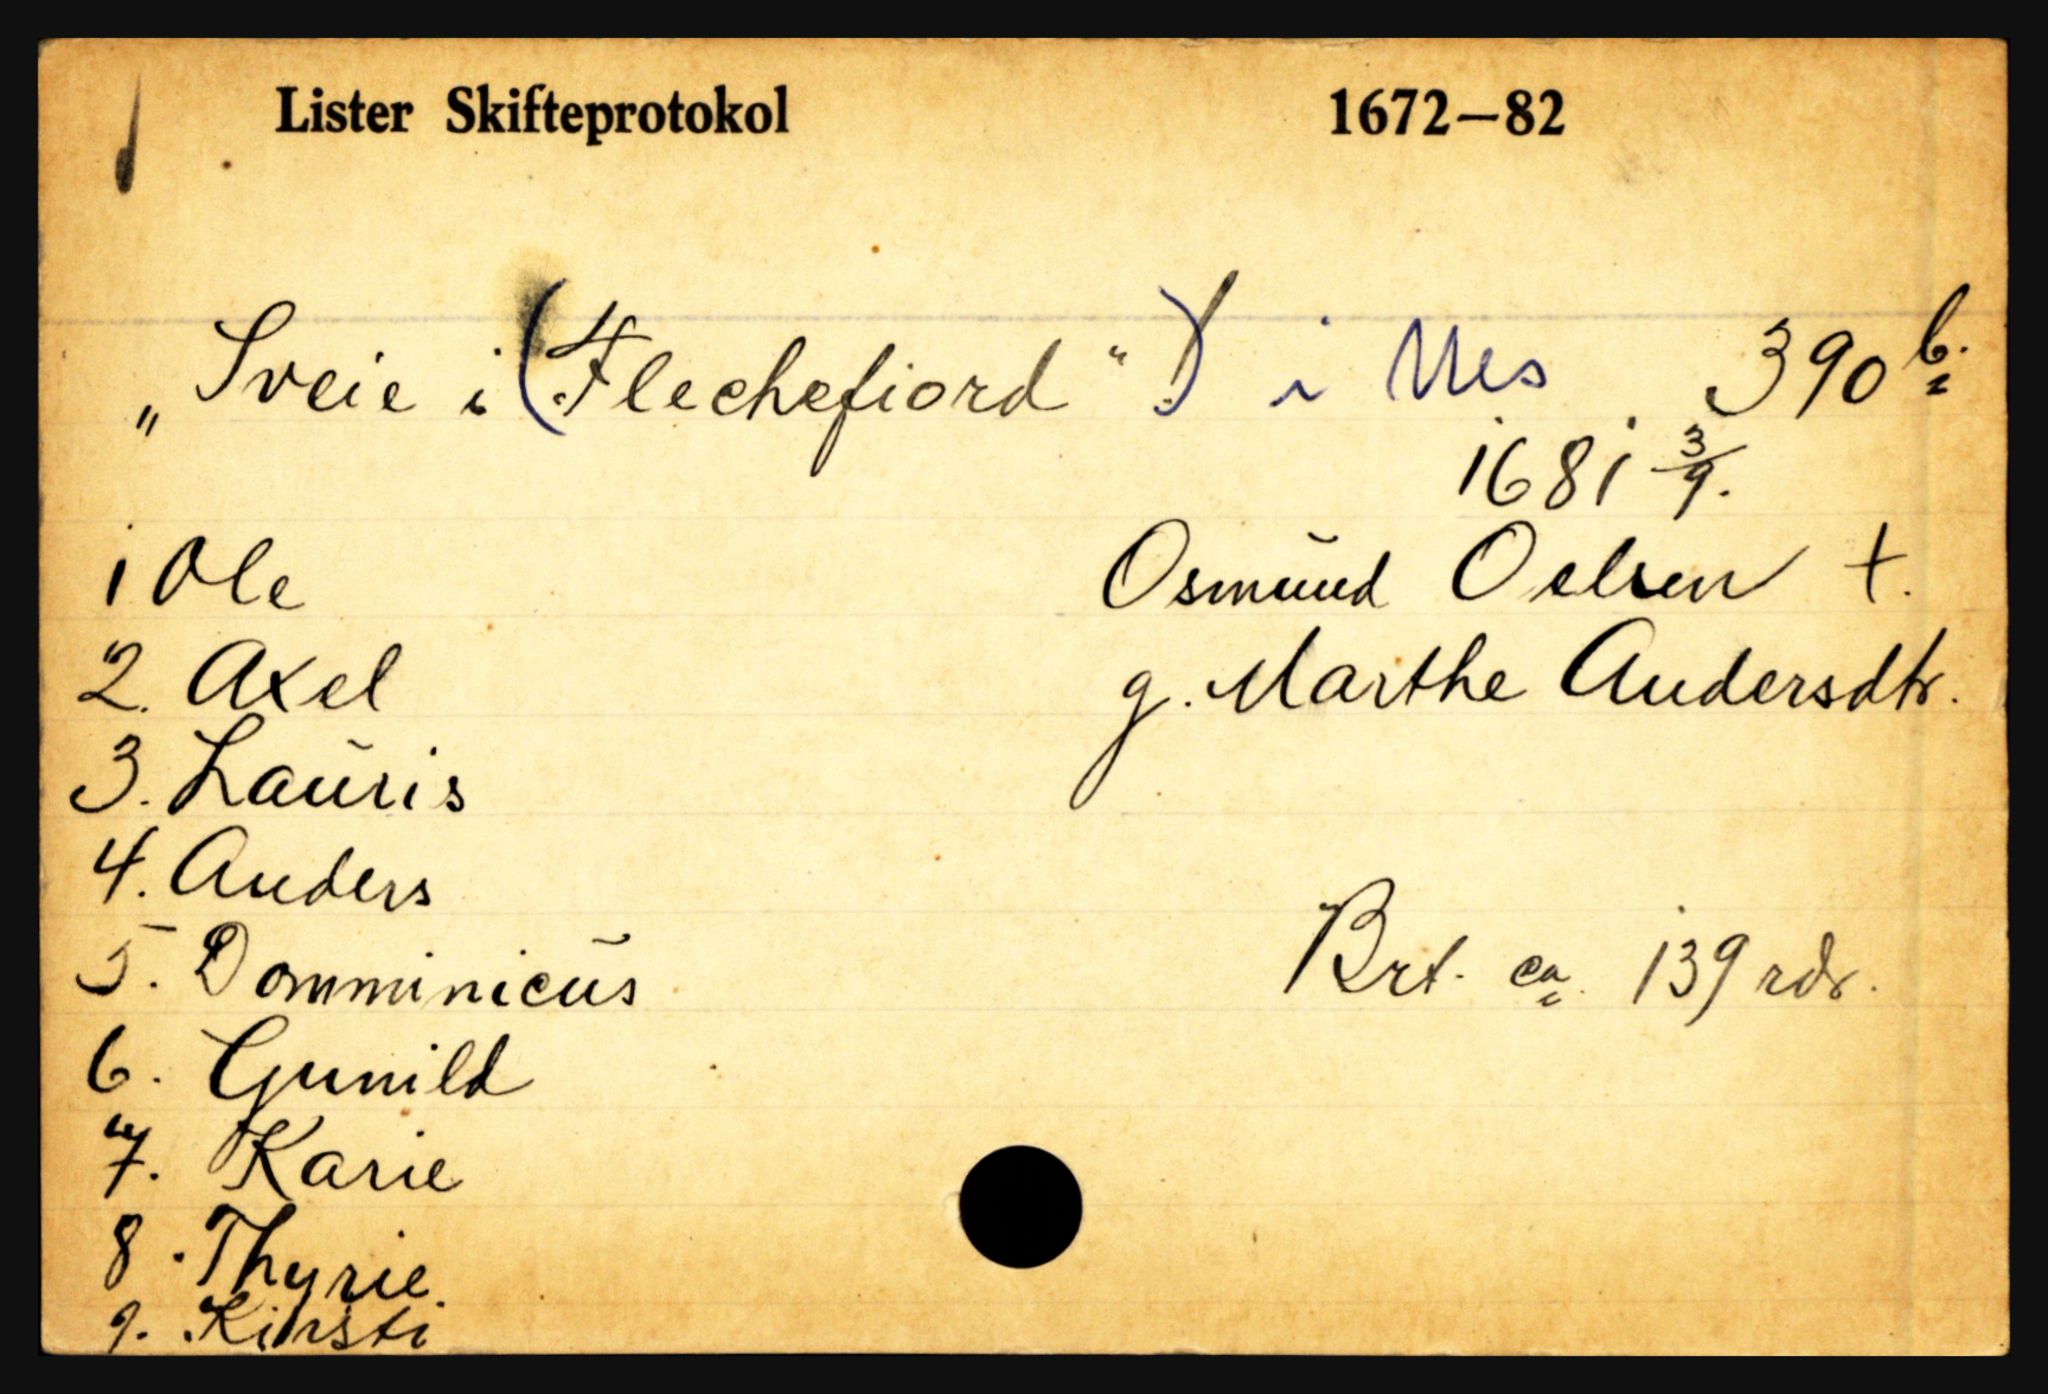 Lister Skifteprotokol 1672—82
„ Sveie i (Flechefiord “ !) i Nes 390 b.
1681 3/9.
1 Ole Osmund Oelsen +.
2. Axel g. Marthe Andersdtr.
3. Lauris
4. Anders
5. Domminicus Brt. ca. 139 rdr.
6. Gunild
7. Karie
8. Thyrie.
9. Kirsti